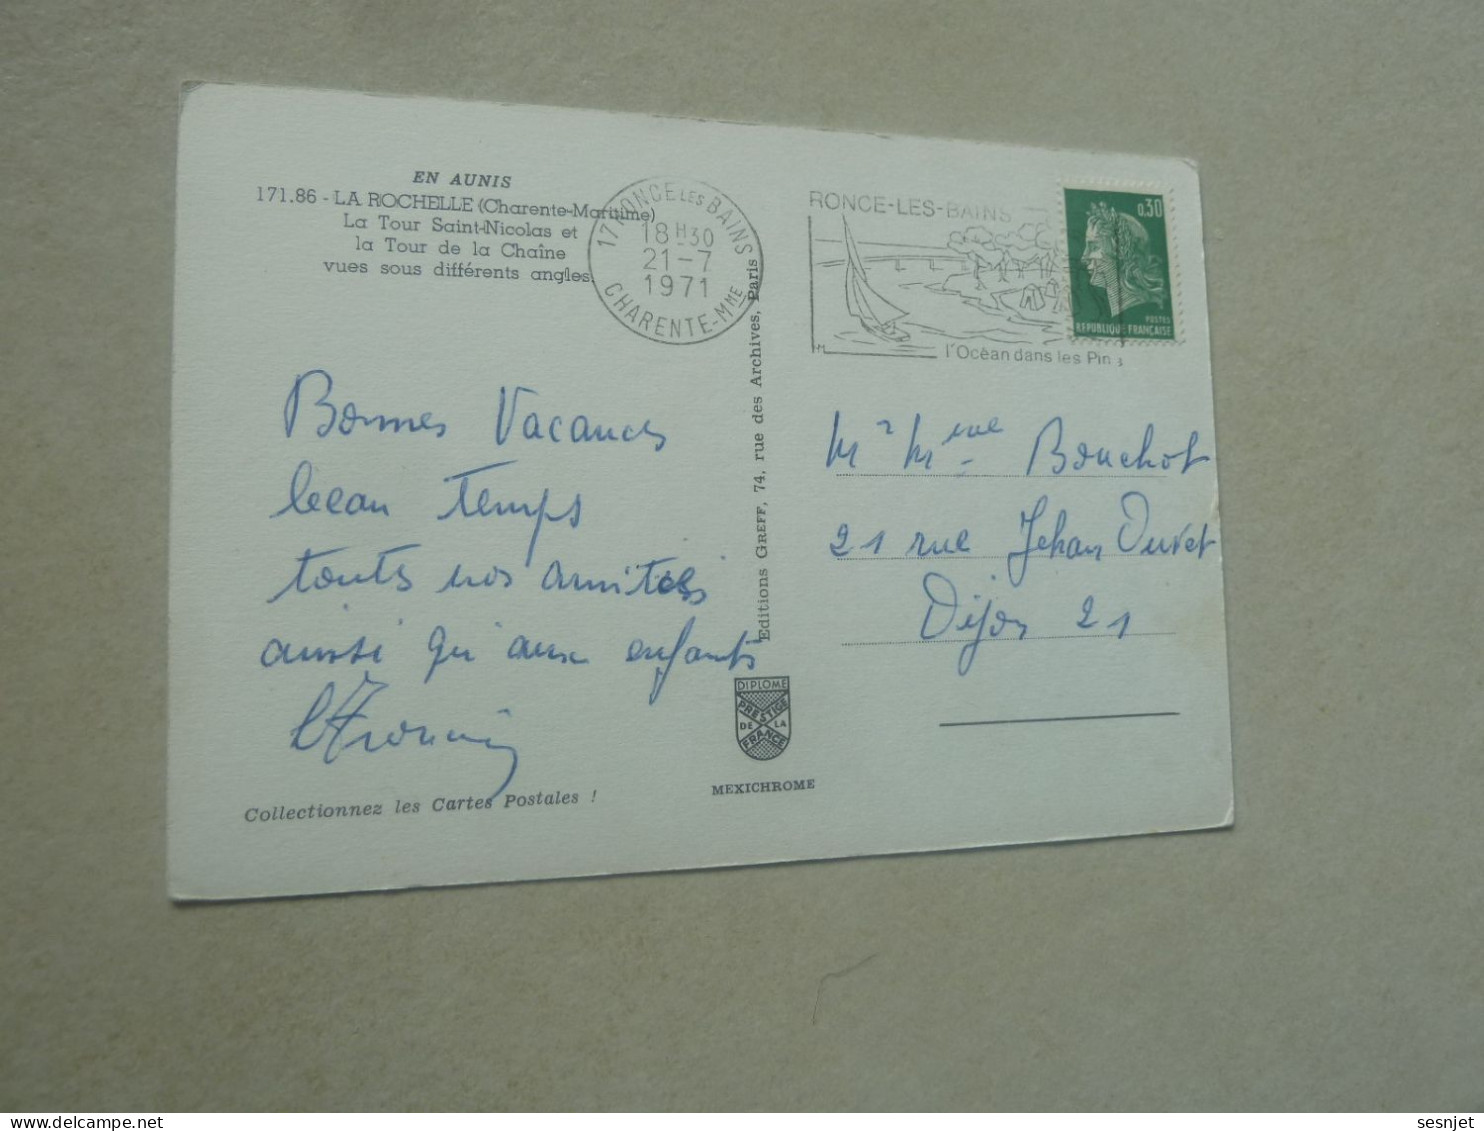 EN AUNIS
171.86 - LA ROCHELLE (Charente-Maritime)
La Tour Saint-Nicolas et
la Tour de la Chaîne
vues sous différents angles.
17 RONCE LES BAINS
18 H 30
21-7
1971
CHARENTE-MME
RONCE-LES-BAINS
l'Océan dans les Pins
HM
0,30
POSTES
REPUBLIQUE FRANÇAISE
Bonnes Vacances
beau Temps
toutes nos amitiés
ainsi qu'aux enfants
Editions GREFF, 74, rue des Archives, Paris
Mr Mme Bouchot
21 rue Jehan Duret
Dijon 21
DIPLOME
PRESTIGE
DE LA
FRANCE
MEXICHROME
Collectionnez les Cartes Postales !
sesnjet